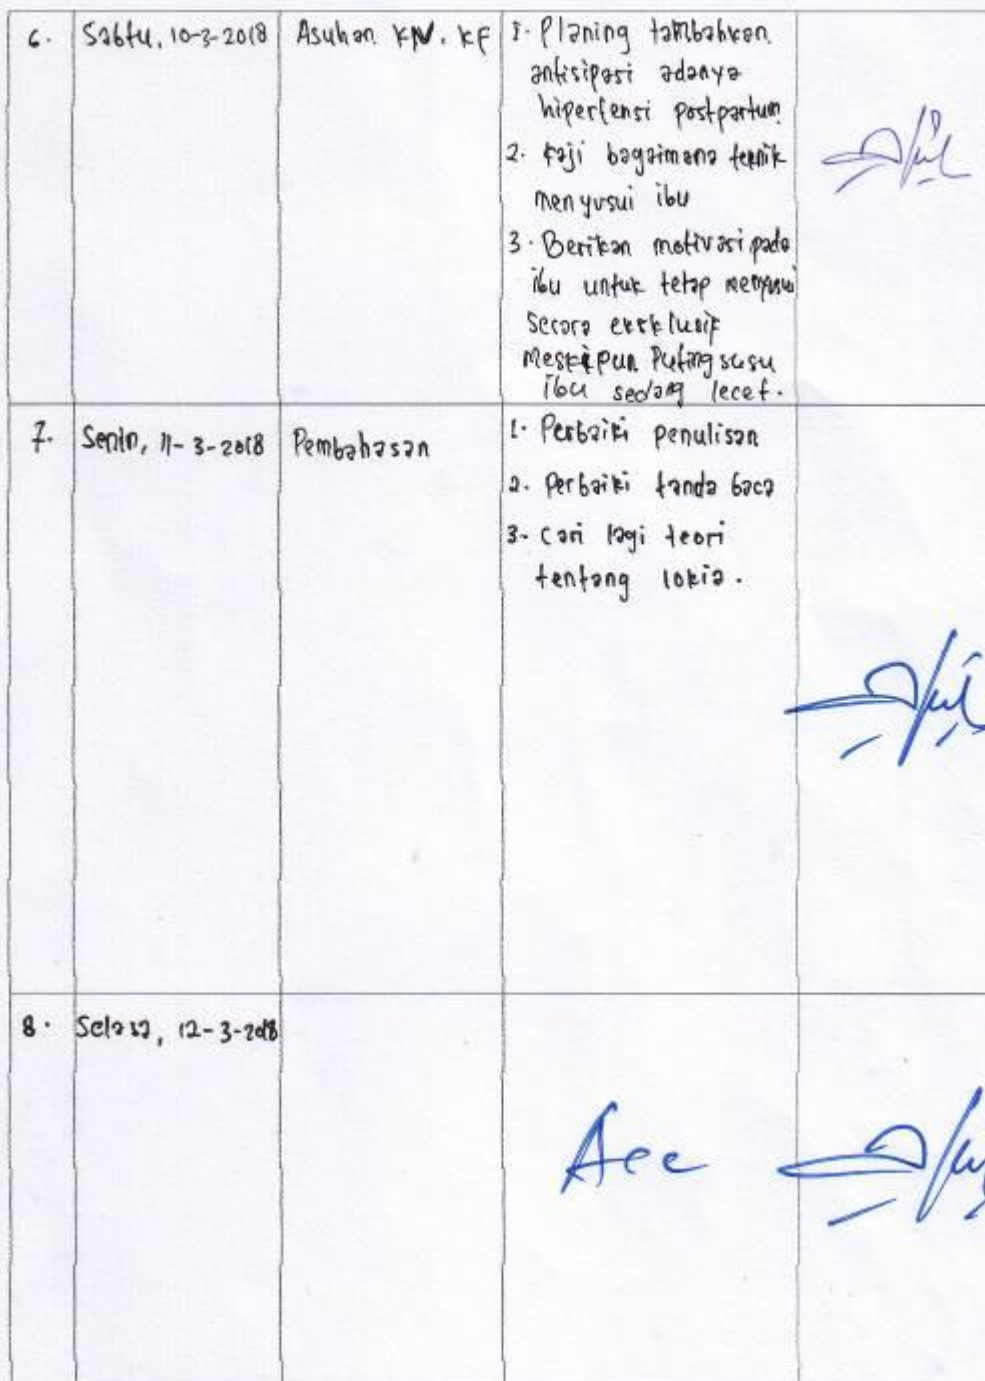 6. Sabtu, 10-3-2018 Asuhan KN. KF 1. Planing tambahkan
antisipasi adanya
hipertensi postpartum
2. Kaji bagaimana teknik
menyusui ibu
3. Berikan motivasi pada
ibu untuk tetap menyusui
secara eksklusif
Meskipun Puting susu
ibu sedang lecet.
7. Senin, 11-3-2018 Pembahasan 1. Perbaiki penulisan
2. Perbaiki tanda baca
3. Cari lagi teori
tentang lokia.
8. Selasa, 12-3-2018
Acc